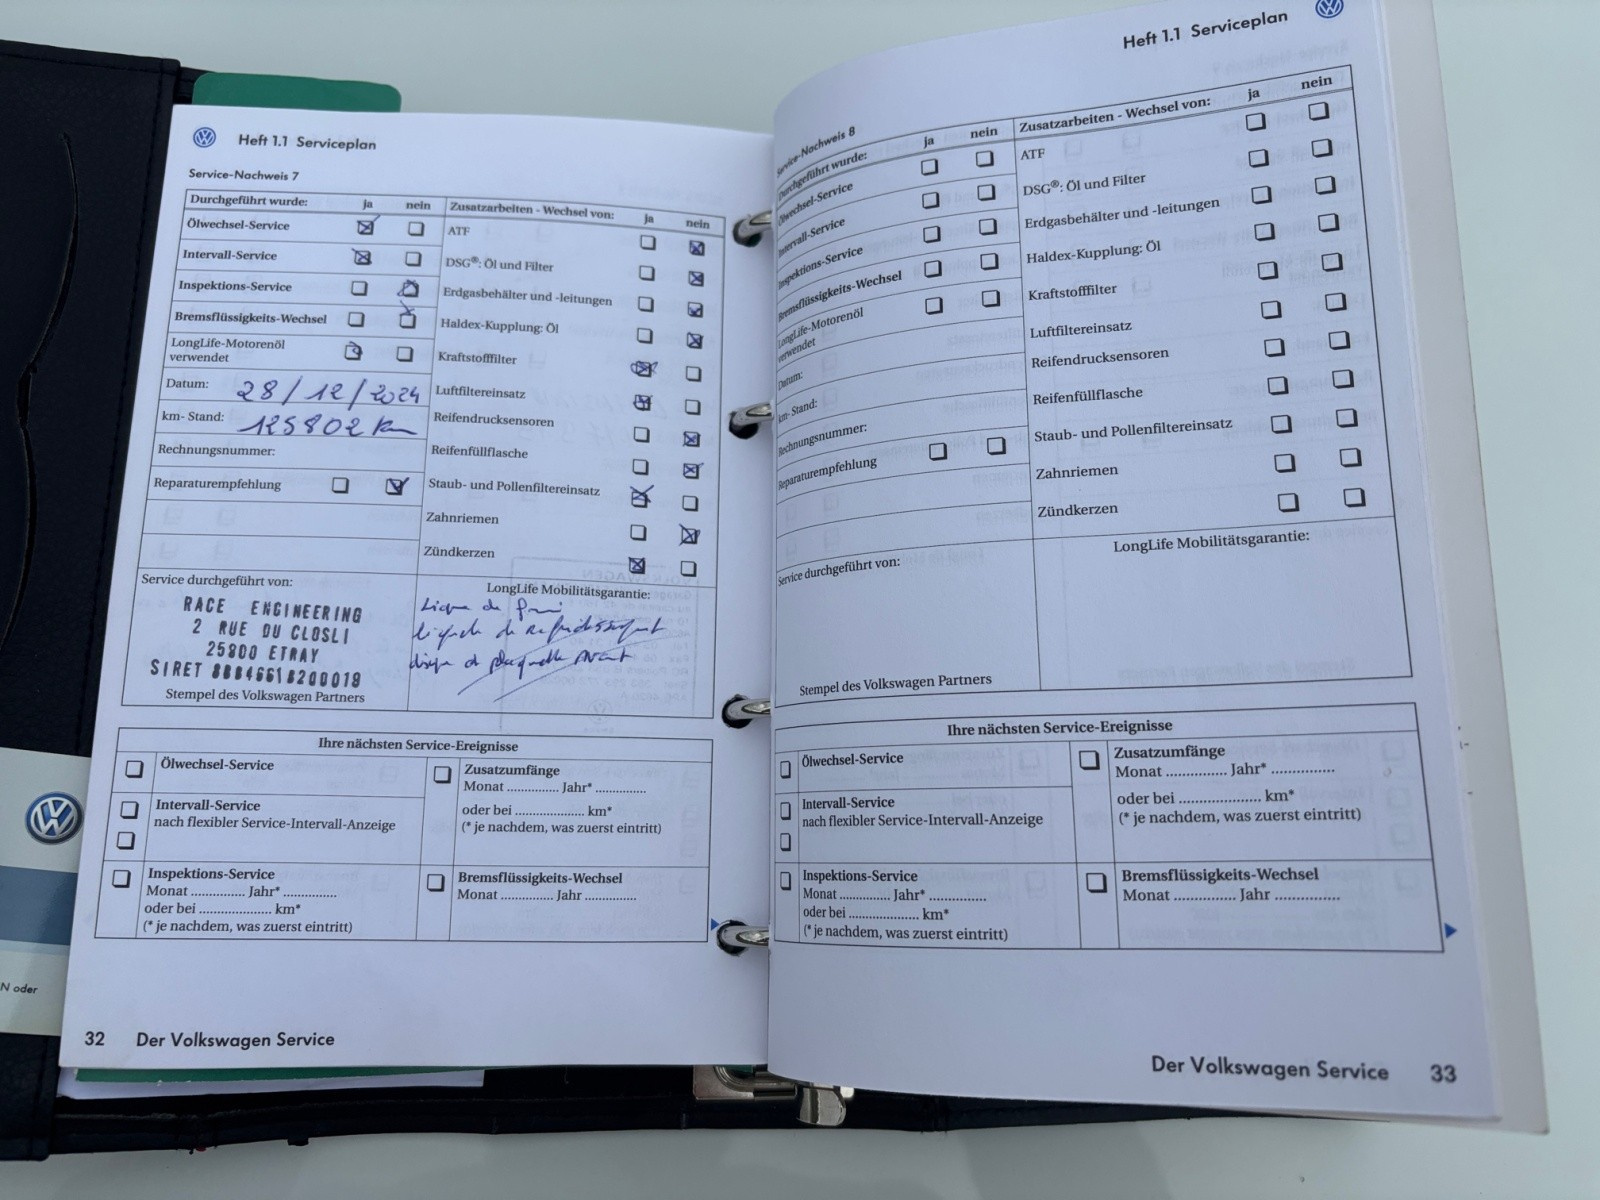 Heft 1.1 Serviceplan
Service-Nachweis 7
Durchgeführt wurde: ja nein
Ölwechsel-Service
Intervall-Service
Inspektions-Service
Bremsflüssigkeits-Wechsel
LongLife-Motorenöl
verwendet
Datum: 28/12/2024
km- Stand: 125802 km
Rechnungsnummer:
Reparaturempfehlung
Zusatzarbeiten - Wechsel von: ja nein
ATF
DSG®: Öl und Filter
Erdgasbehälter und -leitungen
Haldex-Kupplung: Öl
Kraftstofffilter
Luftfiltereinsatz
Reifendrucksensoren
Reifenfüllflasche
Staub- und Pollenfiltereinsatz
Zahnriemen
Zündkerzen
Service durchgeführt von:
RACE ENGINEERING
2 RUE DU CLOSLI
25800 ETRAY
SIRET
Stempel des Volkswagen Partners
LongLife Mobilitätsgarantie:
de
de
plaquette avant
Ihre nächsten Service-Ereignisse
Ölwechsel-Service
Intervall-Service
nach flexibler Service-Intervall-Anzeige
Inspektions-Service
Monat ............... Jahr* ...............
oder bei ..................... km*
(* je nachdem, was zuerst eintritt)
Zusatzumfänge
Monat ............... Jahr* ...............
oder bei ..................... km*
(* je nachdem, was zuerst eintritt)
Bremsflüssigkeits-Wechsel
Monat ............... Jahr ...............
32 Der Volkswagen Service
N oder
Heft 1.1 Serviceplan
Service-Nachweis 8
Durchgeführt wurde: ja nein
Ölwechsel-Service
Intervall-Service
Inspektions-Service
Bremsflüssigkeits-Wechsel
LongLife-Motorenöl
verwendet
Datum:
km- Stand:
Rechnungsnummer:
Reparaturempfehlung
Zusatzarbeiten - Wechsel von: ja nein
ATF
DSG®: Öl und Filter
Erdgasbehälter und -leitungen
Haldex-Kupplung: Öl
Kraftstofffilter
Luftfiltereinsatz
Reifendrucksensoren
Reifenfüllflasche
Staub- und Pollenfiltereinsatz
Zahnriemen
Zündkerzen
Service durchgeführt von:
Stempel des Volkswagen Partners
LongLife Mobilitätsgarantie:
Ihre nächsten Service-Ereignisse
Ölwechsel-Service
Intervall-Service
nach flexibler Service-Intervall-Anzeige
Inspektions-Service
Monat ............... Jahr* ...............
oder bei .................... km*
(* je nachdem, was zuerst eintritt)
Zusatzumfänge
Monat ............... Jahr* ...............
oder bei ..................... km*
(* je nachdem, was zuerst eintritt)
Bremsflüssigkeits-Wechsel
Monat ............... Jahr ...............
Der Volkswagen Service 33